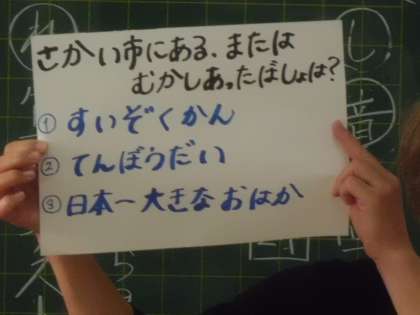 さかい市にある、または
むかしあったばしょは?
① すいぞくかん
② てんぼうだい
③ 日本一大きなおはか